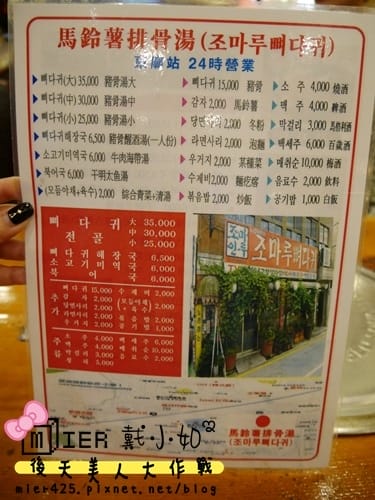 馬鈴薯排骨湯 (조마루뼈다귀)
24時營業
뼈다귀(大) 35,000 豬骨湯大
뼈다귀(中) 30,000 豬骨湯中
뼈다귀(小) 25,000 豬骨湯小
뼈다귀해장국 6,500 豬骨醒酒湯(一人份)
소고기미역국 6,000 牛肉海帶湯
북어국 6,000 干明太魚湯
(모듬야채+육수) 2,000 綜合青菜+清湯
뼈다귀 15,000 豬骨
감자 2,000 馬鈴薯
당면사리 2,000 冬粉
라면사리 2,000 泡麵
우거지 2,000 菜種菜
수제비 2,000 麵疙瘩
볶음밥 2,000 炒飯
소 주 4,000 燒酒
맥 주 4,000 啤酒
막걸리 3,000 馬格利酒
백세주 6,000 百歲酒
매취순 10,000 梅酒
음료수 2,000 飲料
공기밥 1,000 白飯
뼈 다 귀 大 35,000
전 골 中 30,000
小 25,000
뼈 다 귀 해 장 국 6,500
소 고 기 미 역 국 6,000
북 어 국 6,000
추가
뼈 다 귀 15,000
감 자 2,000
당면사리 2,000
라면사리 2,000
우 거 지 2,000
수 제 비 2,000
(모듬야채+육수) 2,000
볶 음 밥 2,000
공 기 밥 1,000
주류
소 주 4,000
맥 주 4,000
막 걸 리 3,000
백 세 주 6,000
매 취 순 10,000
음 료 수 2,000
조마루뼈다귀
馬鈴薯排骨湯
(조마루뼈다귀)
MIER 戴小如
後天美人大作戰
mier425.pixnet.net/blog